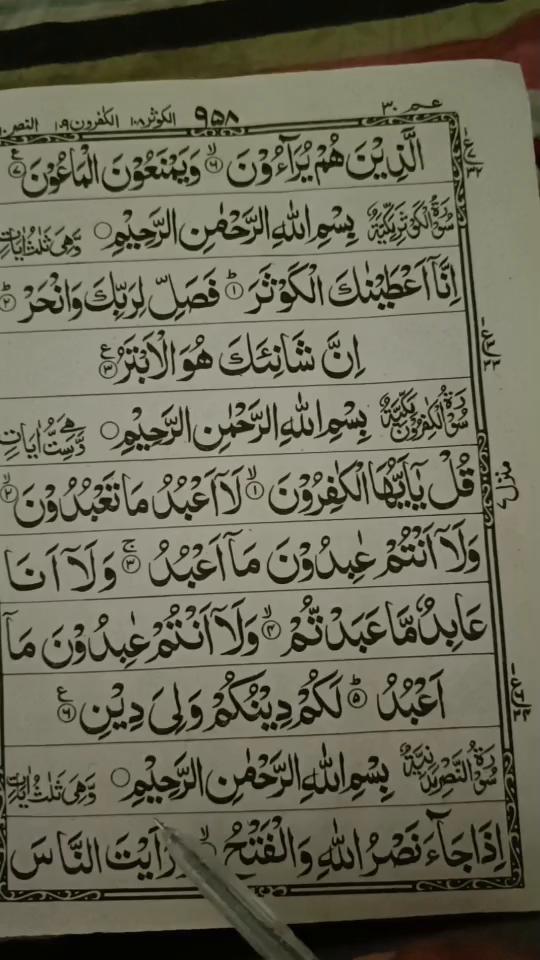 عم ٣٠ ٩٥٨ الكوثر ١٠٨ الكفرون ١٠٩ النصر
الَّذِيْنَ هُمْ يُرَآءُوْنَ ۙ﴿۶﴾ وَيَمْنَعُوْنَ الْمَاعُوْنَ ﴿۷﴾ ع
سُوْرَةُ الْكَوْثَرِ مَكِّيَّةٌ بِسْمِ اللهِ الرَّحْمٰنِ الرَّحِيْمِ ○ وَّهِىَ ثَلٰثُ اٰيَاتٍ
اِنَّاۤ اَعْطَيْنٰكَ الْكَوْثَرَ ؕ﴿۱﴾ فَصَلِّ لِرَبِّكَ وَانْحَرْ ؕ﴿۲﴾
اِنَّ شَانِئَكَ هُوَ الْاَبْتَرُ ﴿۳﴾ ع
سُوْرَةُ الْكٰفِرُوْنَ مَكِّيَّةٌ بِسْمِ اللهِ الرَّحْمٰنِ الرَّحِيْمِ ○ وَّهِىَ سِتُّ اٰيَاتٍ
قُلْ يٰۤاَيُّهَا الْكٰفِرُوْنَ ۙ﴿۱﴾ لَاۤ اَعْبُدُ مَا تَعْبُدُوْنَ ۙ﴿۲﴾
وَلَاۤ اَنْتُمْ عٰبِدُوْنَ مَاۤ اَعْبُدُ ۚ﴿۳﴾ وَلَاۤ اَنَا
عَابِدٌ مَّا عَبَدْتُّمْ ۙ﴿۴﴾ وَلَاۤ اَنْتُمْ عٰبِدُوْنَ مَاۤ
اَعْبُدُ ؕ﴿۵﴾ لَكُمْ دِيْنُكُمْ وَلِىَ دِيْنِ ﴿۶﴾ ع
سُوْرَةُ النَّصْرِ مَدَنِيَّةٌ بِسْمِ اللهِ الرَّحْمٰنِ الرَّحِيْمِ ○ وَّهِىَ ثَلٰثُ اٰيَاتٍ
اِذَا جَآءَ نَصْرُ اللهِ وَالْفَتْحُ ۙ رَاَيْتَ النَّاسَ
منزل